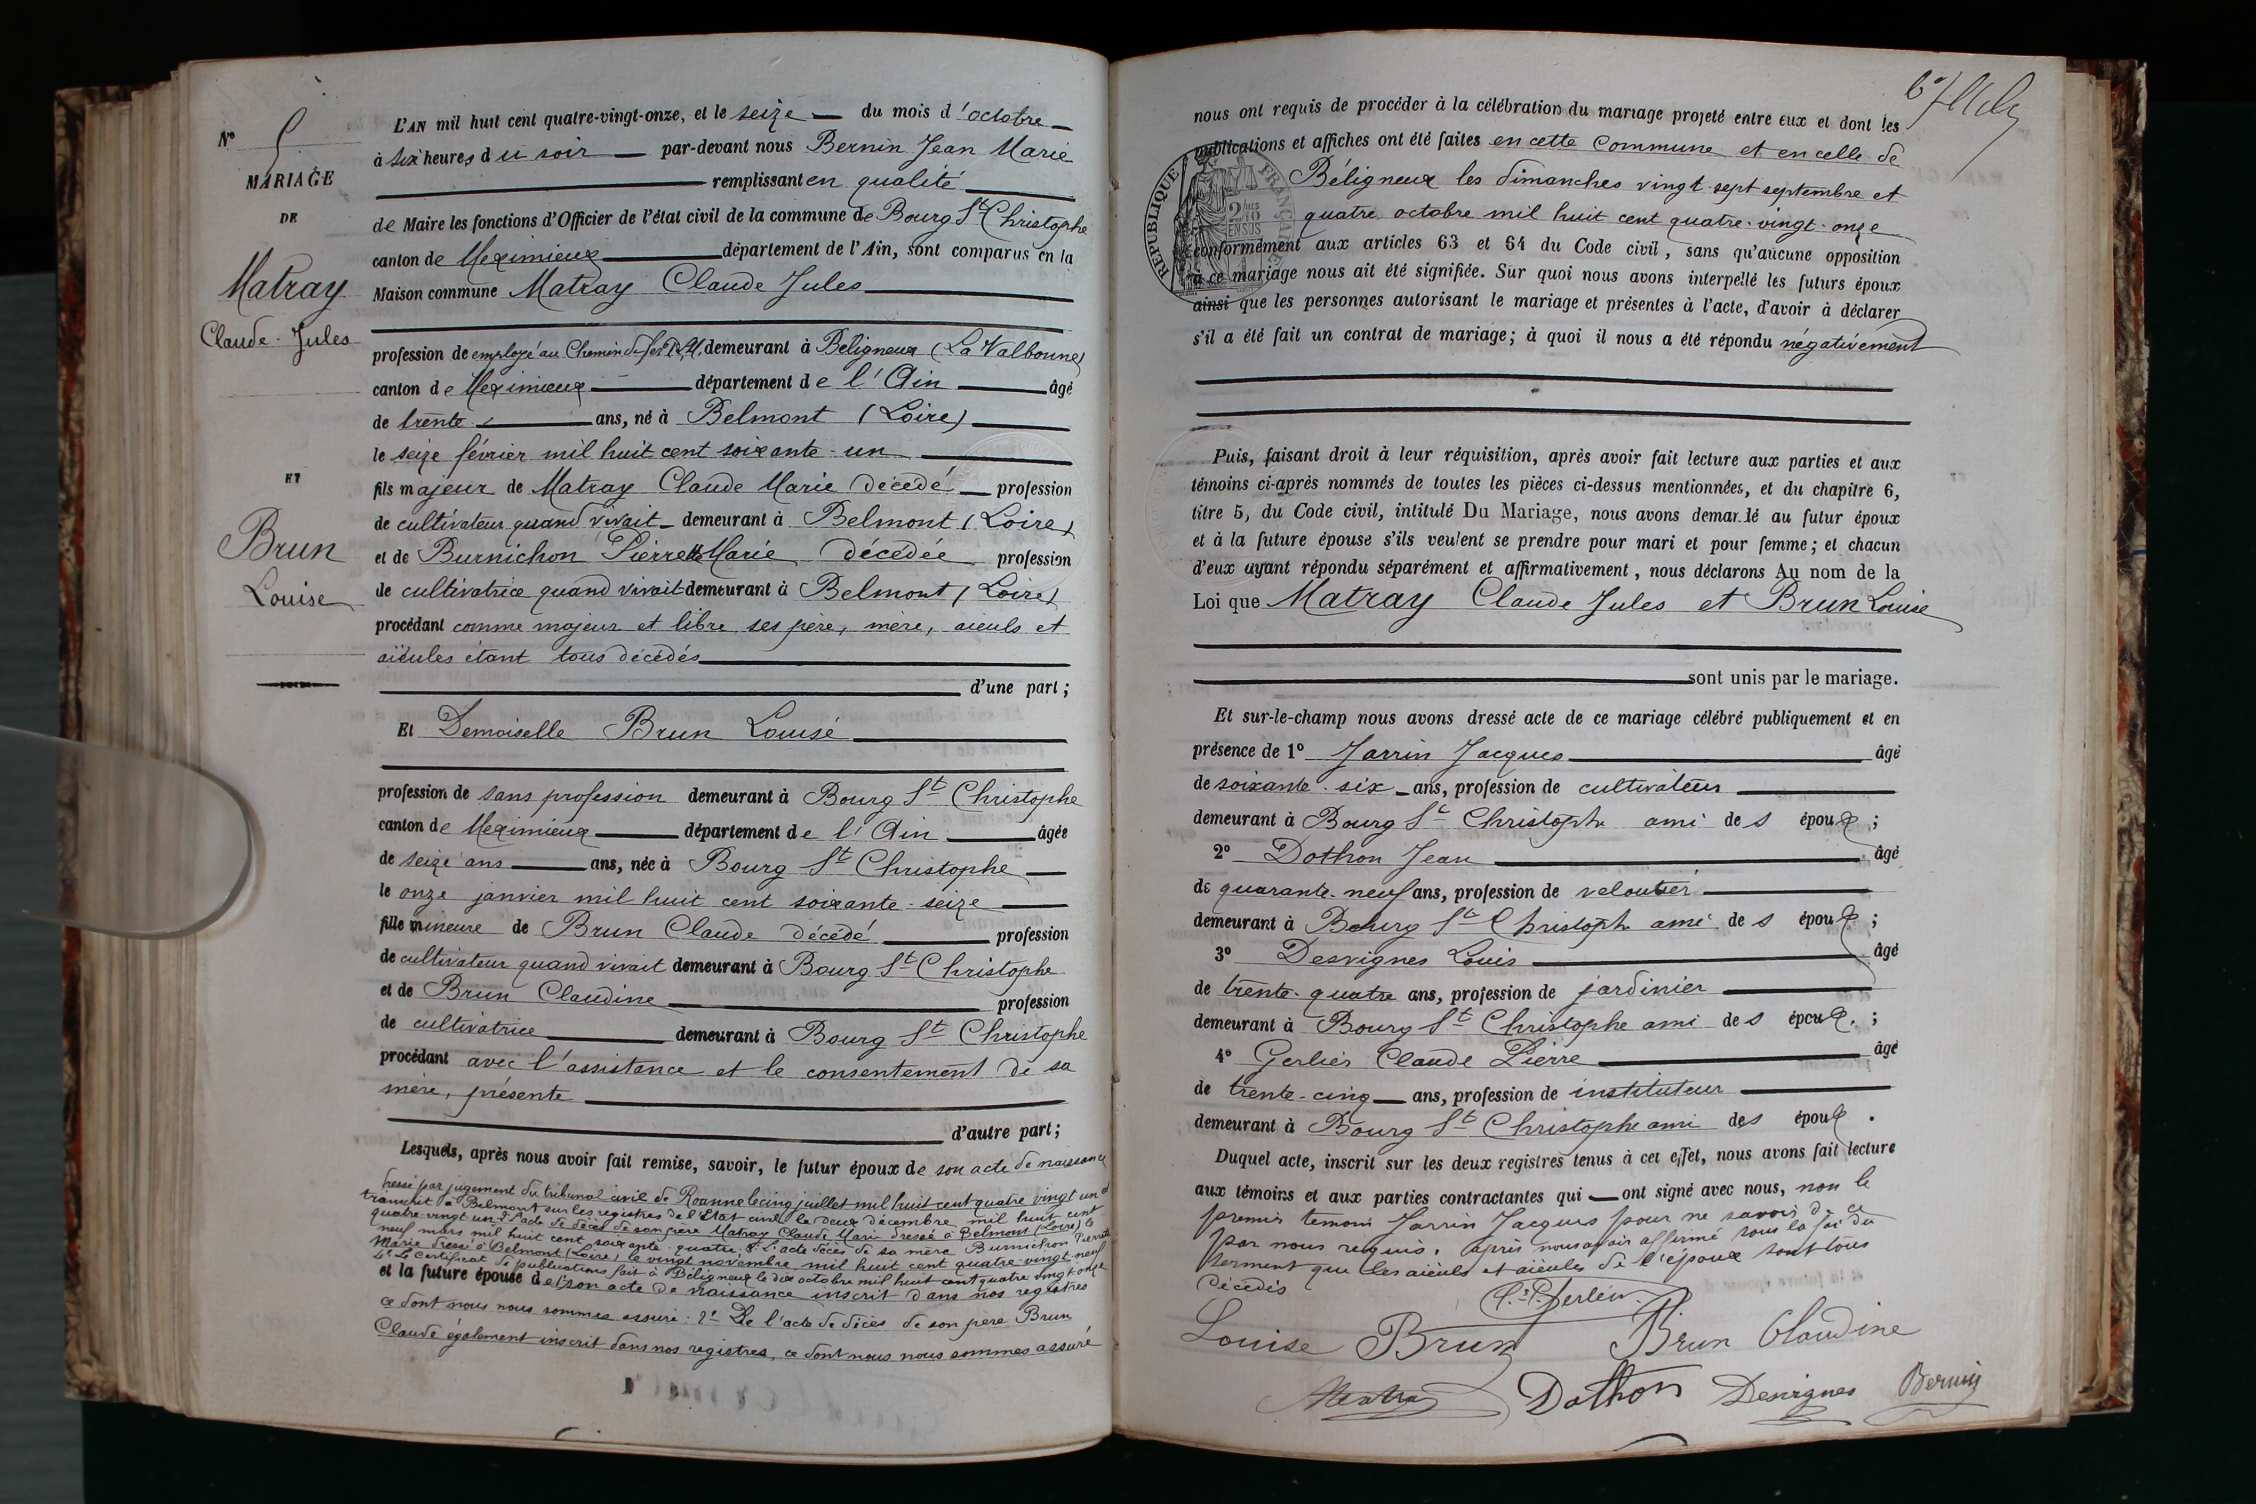 N° 5
MARIAGE
DE
Matray
Claude-Jules
ET
Brun
Louise
L'AN mil huit cent quatre-vingt-onze, et le seize du mois d'octobre
à six heures du soir par-devant nous Bernin Jean Marie
remplissant en qualité
de Maire les fonctions d'Officier de l'état civil de la commune de Bourg St Christophe
canton de Meximieux département de l'Ain, sont comparus en la
Maison commune Matray Claude Jules
profession de employé au Chemin de fer P.L.M. demeurant à Béligneux (La Valbonne)
canton de Meximieux département de l'Ain âgé
de trente ans, né à Belmont (Loire)
le seize février mil huit cent soixante-un
fils majeur de Matray Claude Marie décédé profession
de cultivateur quand vivait demeurant à Belmont (Loire)
et de Burnichon Pierrette Marie décédée profession
de cultivatrice quand vivait demeurant à Belmont (Loire)
procédant comme majeur et libre ses père, mère, aieuls et
aïeules étant tous décédés
d'une part ;
Et Demoiselle Brun Louise
profession de sans profession demeurant à Bourg St Christophe
canton de Meximieux département de l'Ain âgée
de seize ans ans, née à Bourg St Christophe
le onze janvier mil huit cent soixante-seize
fille mineure de Brun Claude décédé profession
de cultivateur quand vivait demeurant à Bourg St Christophe
et de Brun Claudine profession
de cultivatrice demeurant à Bourg St Christophe
procédant avec l'assistance et le consentement de sa
mère, présente
d'autre part ;
Lesquels, après nous avoir fait remise, savoir, le futur époux de son acte de naissance
par jugement du tribunal civil de Roanne le cinq juillet mil huit cent quatre vingt un et
transcrit à Belmont sur les registres de l'Etat civil le deux décembre mil huit cent
quatre-vingt un 2° l'acte de décès de son père Matray Claude Marie dressé à Belmont (Loire) le
neuf mars mil huit cent soixante-quatre, 3° L'acte décès de sa mère Burnichon Pierrette
Marie dressé à Belmont (Loire) le vingt novembre mil huit cent quatre vingt-neuf
4° Le Certificat de publications fait à Béligneux le dix octobre mil huit cent quatre vingt-onze
et la future épouse de 1° son acte de naissance inscrit dans nos registres
ce dont nous nous sommes assuré : 2° De l'acte de décès de son père Brun
Claude également inscrit dans nos registres, ce dont nous nous sommes assuré
nous ont requis de procéder à la célébration du mariage projeté entre eux et dont les
publications et affiches ont été faites en cette Commune et en celle de
Béligneux les dimanches vingt-sept septembre et
quatre octobre mil huit cent quatre-vingt-onze
conformément aux articles 63 et 64 du Code civil, sans qu'aucune opposition
à ce mariage nous ait été signifiée. Sur quoi nous avons interpellé les futurs époux
ainsi que les personnes autorisant le mariage et présentes à l'acte, d'avoir à déclarer
s'il a été fait un contrat de mariage ; à quoi il nous a été répondu négativement
RÉPUBLIQUE FRANÇAISE
2/10
EN SUS
Puis, faisant droit à leur réquisition, après avoir fait lecture aux parties et aux
témoins ci-après nommés de toutes les pièces ci-dessus mentionnées, et du chapitre 6,
titre 5, du Code civil, intitulé Du Mariage, nous avons demandé au futur époux
et à la future épouse s'ils veulent se prendre pour mari et pour femme ; et chacun
d'eux ayant répondu séparément et affirmativement, nous déclarons Au nom de la
Loi que Matray Claude Jules et Brun Louise
sont unis par le mariage.
Et sur-le-champ nous avons dressé acte de ce mariage célébré publiquement et en
présence de 1° Jarrin Jacques âgé
de soixante-six ans, profession de cultivateur
demeurant à Bourg St Christophe ami des époux ;
2° Dothon Jean âgé
de quarante-neuf ans, profession de veloutier
demeurant à Bourg St Christophe ami des époux ;
3° Desvignes Louis âgé
de trente-quatre ans, profession de jardinier
demeurant à Bourg St Christophe ami des époux. ;
4° Gerlier Claude Pierre âgé
de trente-cinq ans, profession de instituteur
demeurant à Bourg St Christophe ami des époux.
Duquel acte, inscrit sur les deux registres tenus à cet effet, nous avons fait lecture
aux témoins et aux parties contractantes qui ont signé avec nous, non le
premier temoin Jarrin Jacques pour ne savoir de ce
par nous requis. après nous avoir affirmé sous la foi du
serment que les aïeuls et aïeules de l'époux sont tous
décédés
C.P. Gerlier
Louise Brun Brun Claudine
Matray Dothon Desvignes Bernin